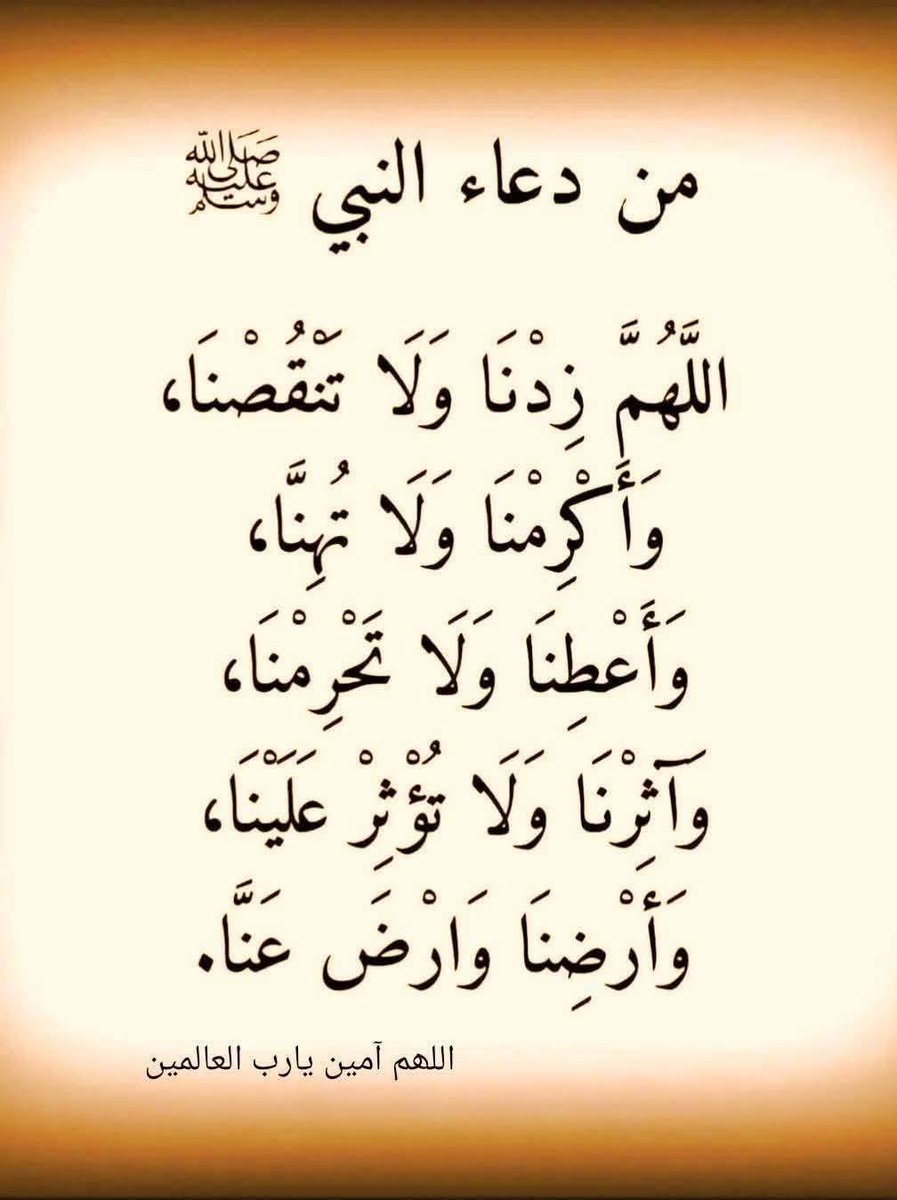 من دعاء النبي ﷺ
اللَّهُمَّ زِدْنَا وَلَا تَنْقُصْنَا،
وَأَكْرِمْنَا وَلَا تُهِنَّا،
وَأَعْطِنَا وَلَا تَحْرِمْنَا،
وَآثِرْنَا وَلَا تُؤْثِرْ عَلَيْنَا،
وَأَرْضِنَا وَارْضَ عَنَّا.
اللهم آمين يارب العالمين